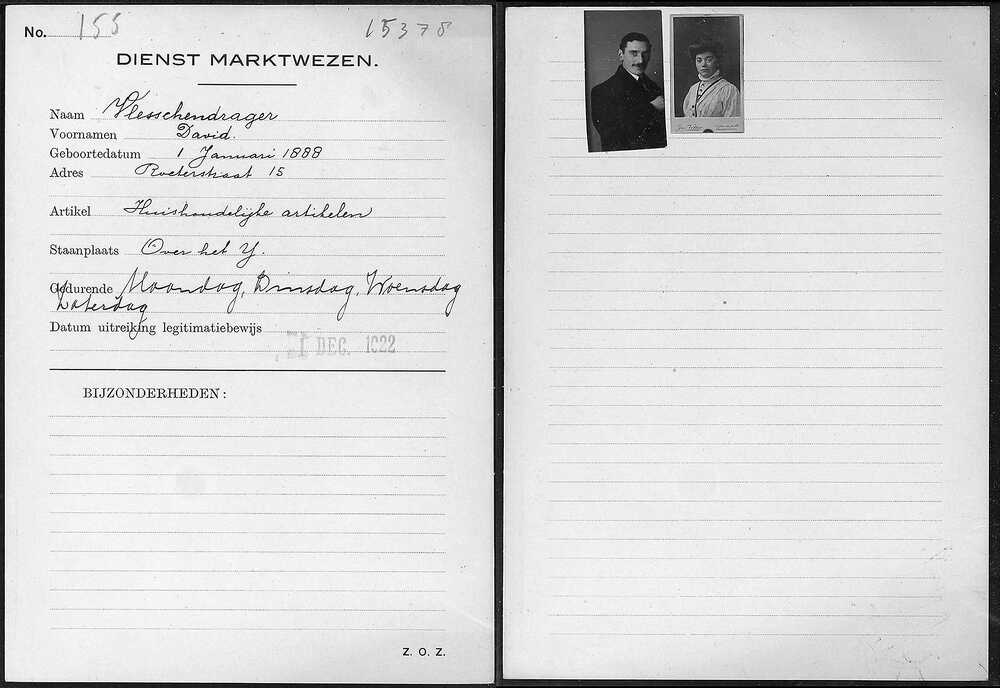 No. 155 15378
DIENST MARKTWEZEN.
Naam Vlesschendrager
Voornamen David.
Geboortedatum 1 Januari 1888
Adres Roeterstraat 15
Artikel Huishoudelijke artikelen
Staanplaats Over het Y.
Gedurende Maandag, Dinsdag, Woensdag
Zaterdag
Datum uitreiking legitimatiebewijs
DEC. 1922
BIJZONDERHEDEN:
Z. O. Z.